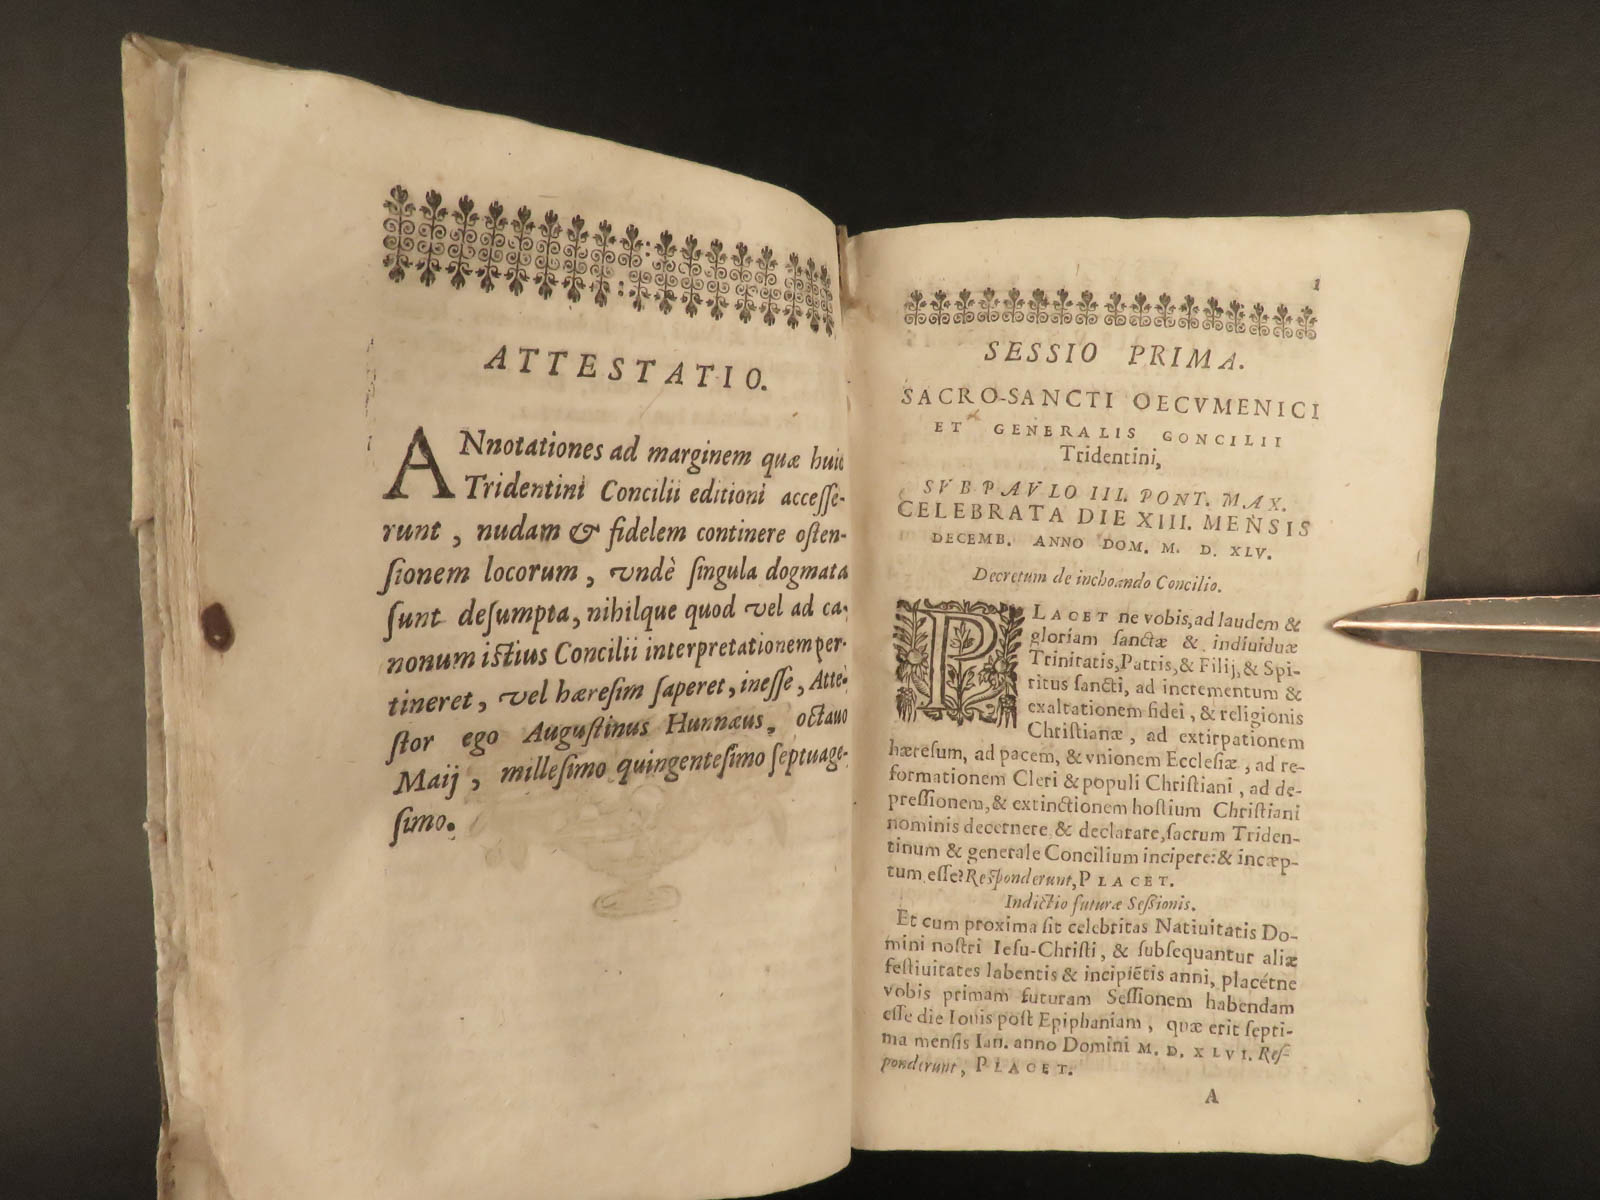 ATTESTATIO.
ANnotationes ad marginem quæ huic
Tridentini Concilii editioni accesſe-
runt, nudam & fidelem continere oſten-
ſionem locorum, vndè ſingula dogmata
ſunt deſumpta, nihilque quod vel ad ca-
nonum iſtius Concilii interpretationem per-
tineret, vel hæreſim ſaperet, ineſſe, Atte-
ſtor ego Auguſtinus Hunnæus, octauo
Maij, milleſimo quingenteſimo ſeptuage-
ſimo.
1
SESSIO PRIMA.
SACRO-SANCTI OECVMENICI
ET GENERALIS CONCILII
Tridentini,
SVB PAVLO III. PONT. MAX.
CELEBRATA DIE XIII. MENSIS
DECEMB. ANNO DOM. M. D. XLV.
Decretum de inchoando Concilio.
PLACET ne vobis, ad laudem &
gloriam ſanctæ & indiuiduæ
Trinitatis, Patris, & Filij, & Spi-
ritus ſancti, ad incrementum &
exaltationem fidei, & religionis
Chriſtianæ, ad extirpationem
hæreſum, ad pacem, & vnionem Eccleſiæ, ad re-
formationem Cleri & populi Chriſtiani, ad de-
preſſionem, & extinctionem hoſtium Chriſtiani
nominis decernere & declarare, ſacrum Triden-
tinum & generale Concilium incipere: & incæp-
tum eſſe? Reſponderunt, PLACET.
Indictio futuræ Seſſionis.
Et cum proxima ſit celebritas Natiuitatis Do-
mini noſtri Ieſu-Chriſti, & ſubſequantur aliæ
feſtiuitates labentis & incipiẽtis anni, placétne
vobis primam futuram Seſſionem habendam
eſſe die Iouis poſt Epiphaniam, quæ erit ſepti-
ma menſis Ian. anno Domini M. D. XLVI. Reſ-
ponderunt, PLACET.
A